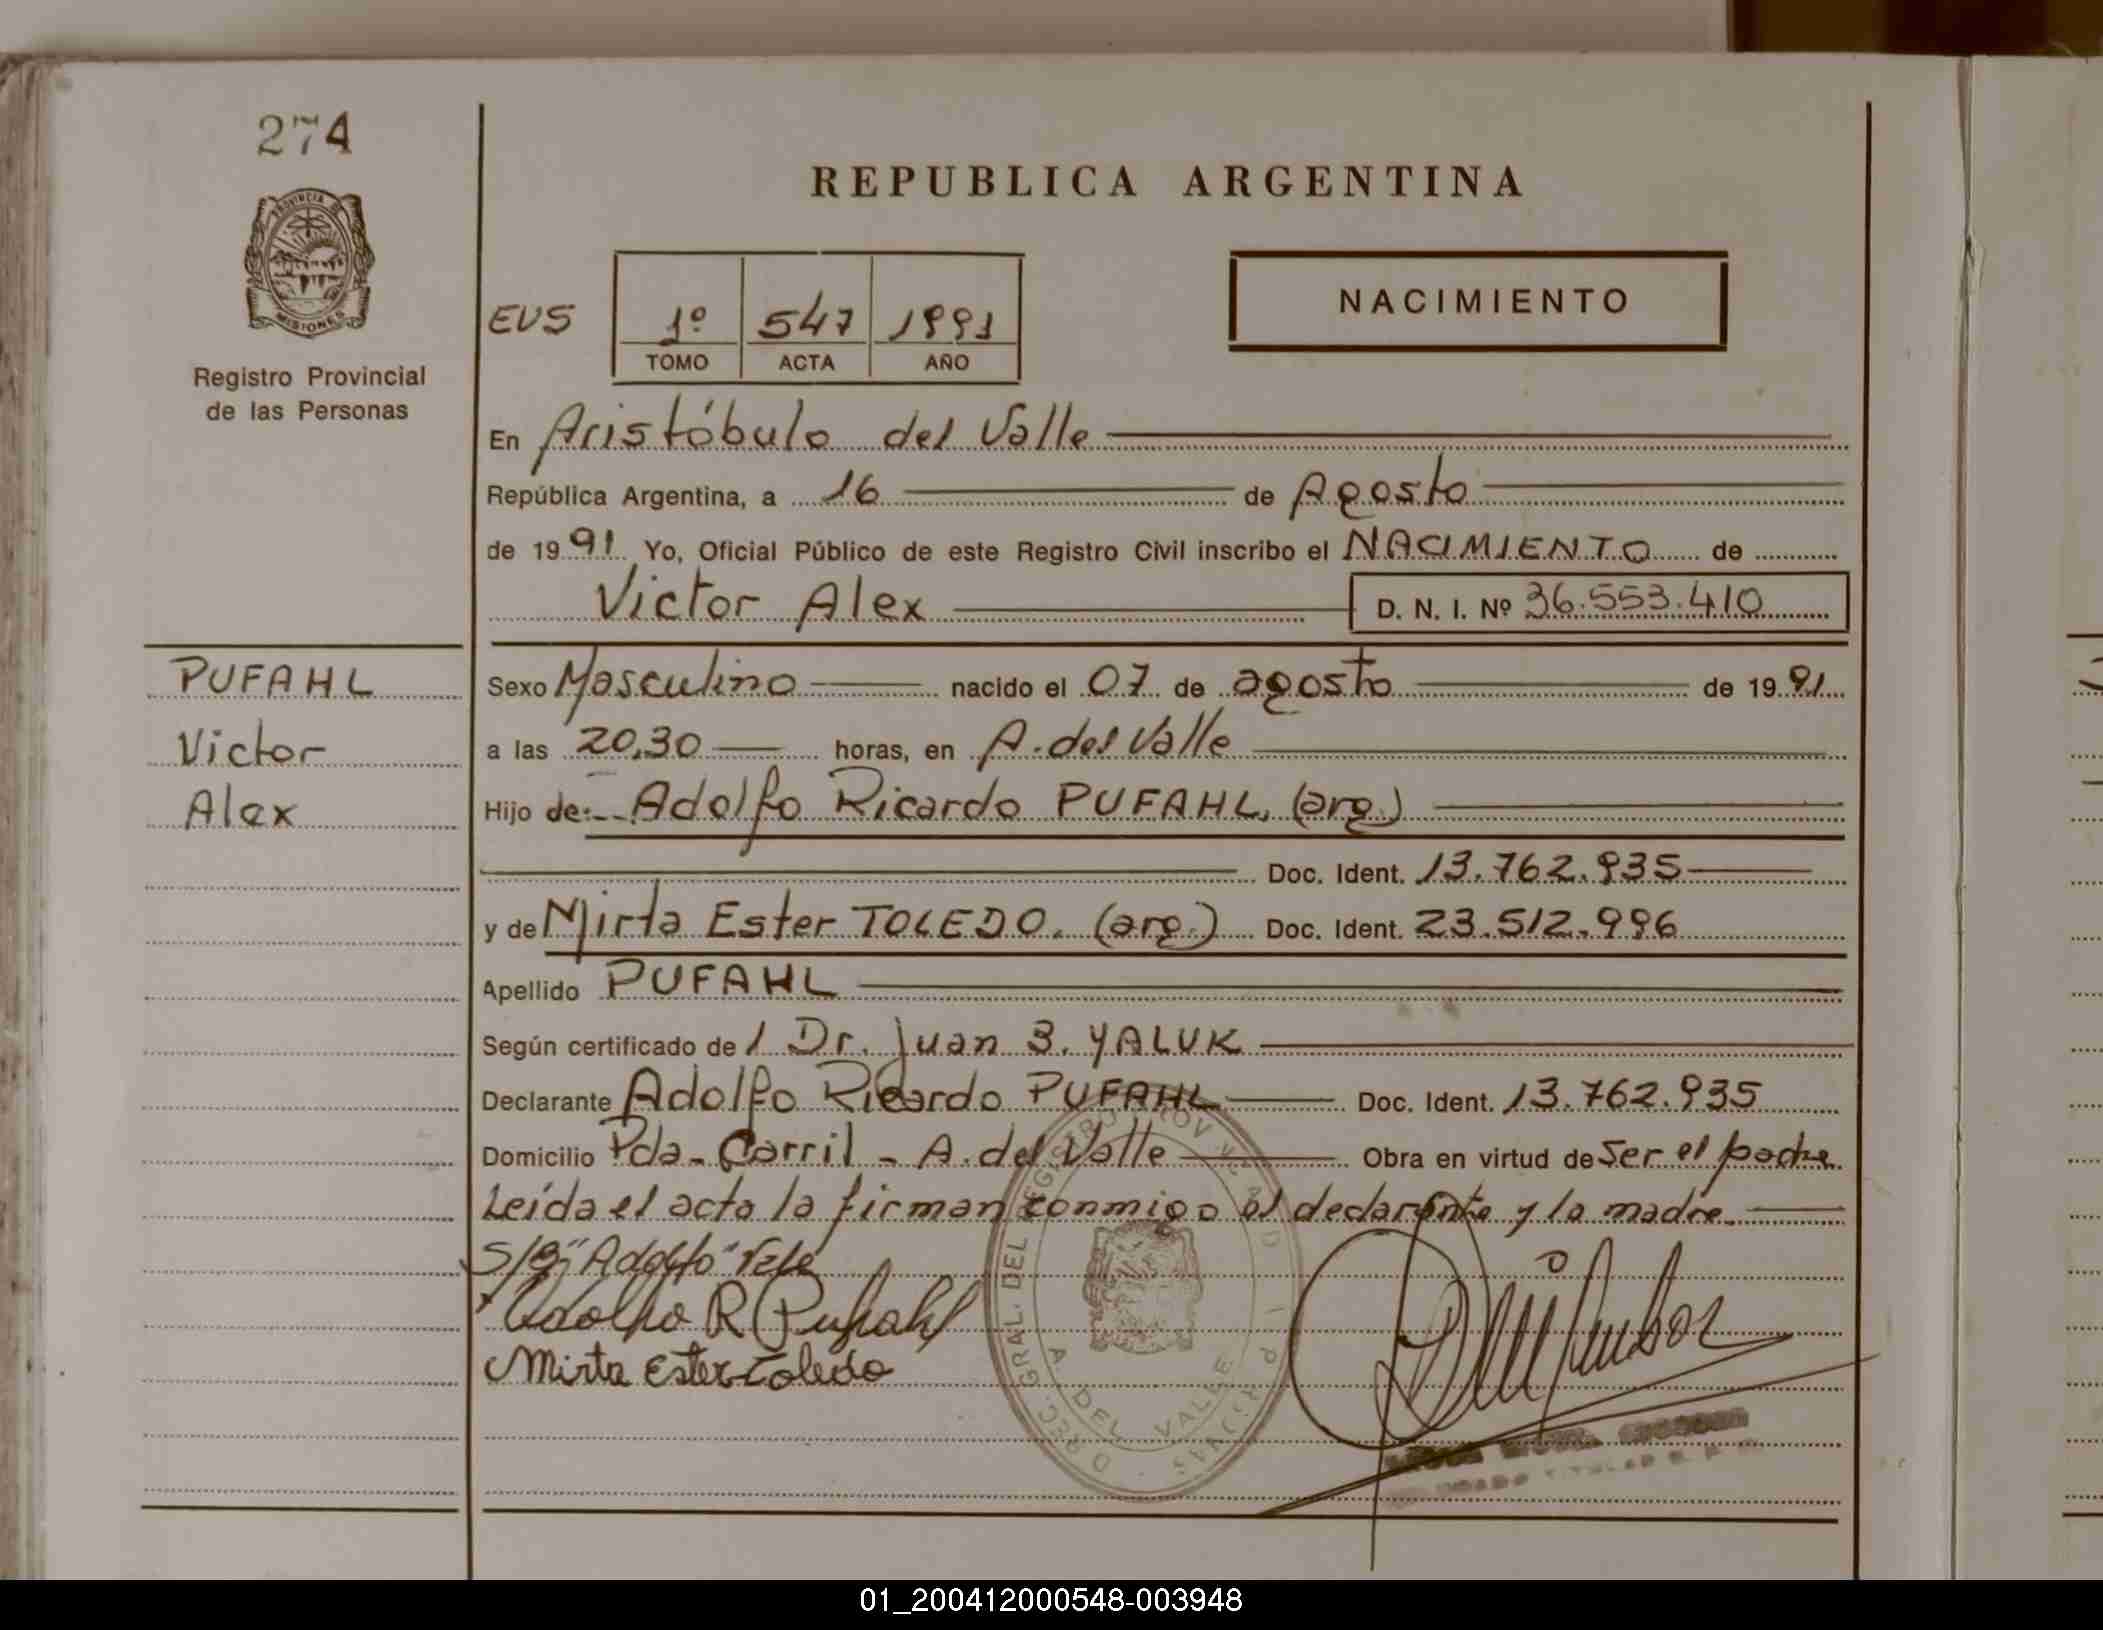 274
PROVINCIA DE
MISIONES
Registro Provincial
de las Personas
REPUBLICA ARGENTINA
EVS
1º 547 1991
TOMO ACTA AÑO
NACIMIENTO
En Aristóbulo del Valle
República Argentina, a 16 de Agosto
de 1991 Yo, Oficial Público de este Registro Civil inscribo el NACIMIENTO de
Victor Alex D. N. I. Nº 36.553.410
PUFAHL
Victor
Alex
Sexo Masculino nacido el 07 de agosto de 1991
a las 20,30 horas, en A. del Valle
Hijo de: Adolfo Ricardo PUFAHL, (arg.)
Doc. Ident. 13.762.935
y de Mirta Ester TOLEDO. (arg.) Doc. Ident. 23.512.996
Apellido PUFAHL
Según certificado de / Dr. Juan B. YALUK
Declarante Adolfo Ricardo PUFAHL Doc. Ident. 13.762.935
Domicilio Pda. Carril - A. del Valle Obra en virtud de Ser el padre
Leída el acta la firman conmigo el declarante y la madre.
S/B "Adolfo" Vale
Adolfo R Pufahl
Mirta Ester Toledo
GRAL. DEL REGISTRO PROV
A. DEL VALLE
TITULAR
01_200412000548-003948